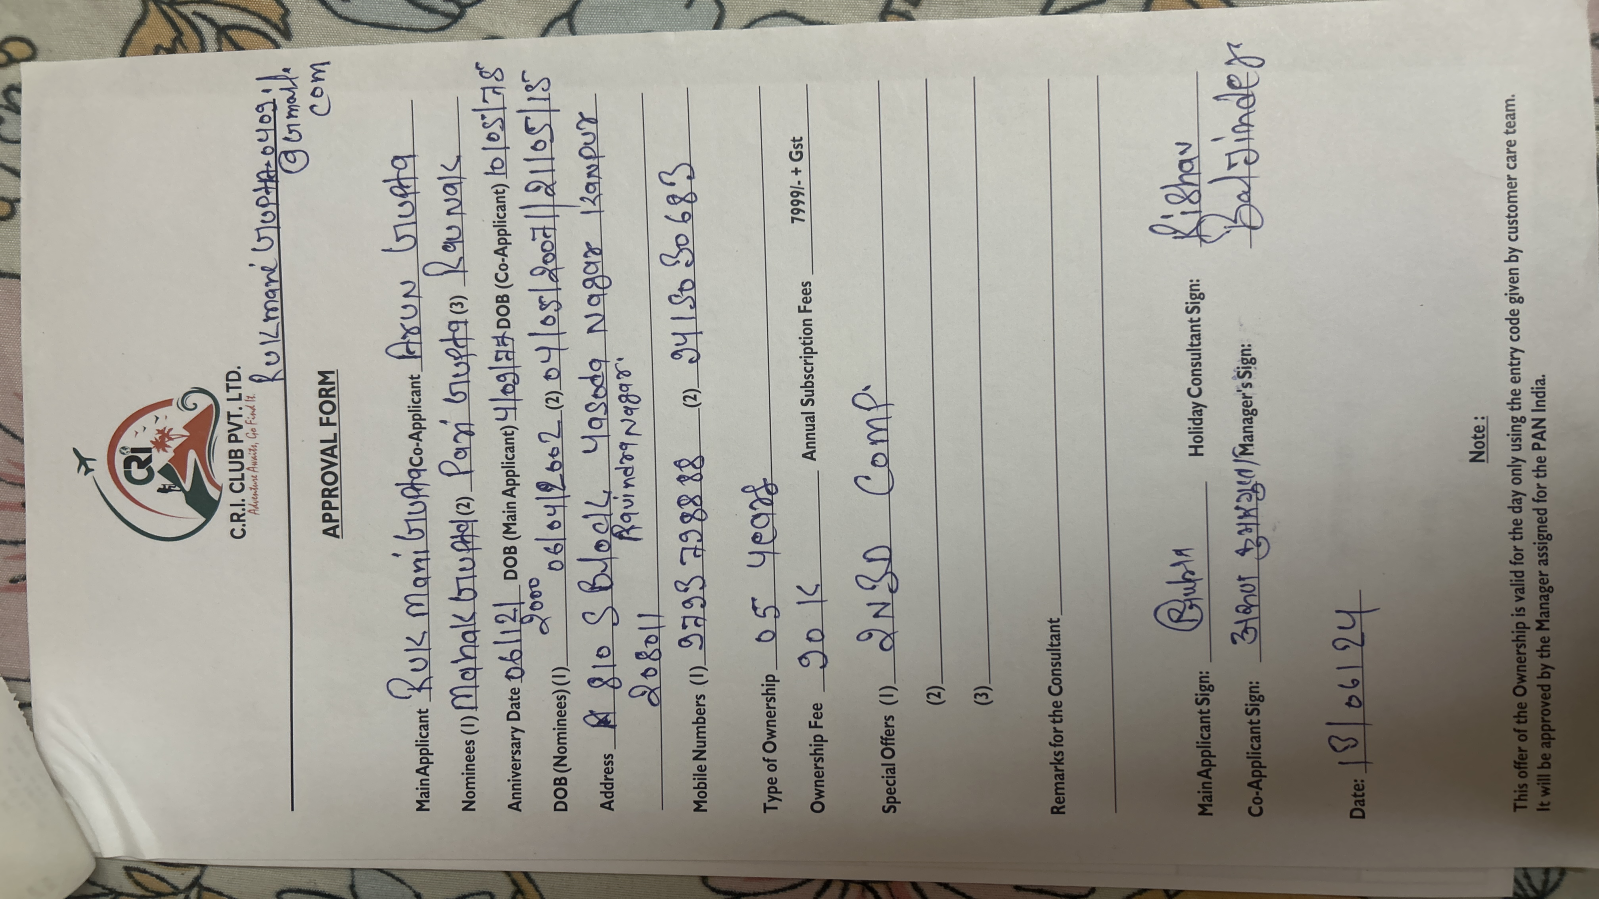 CRI
C.R.I. CLUB PVT. LTD.
Adventure Awaits, Go Find It.
Rukmanigupta0409@gmail.com
APPROVAL FORM
Main Applicant Rukmani Gupta Co-Applicant Arun Gupta
Nominees (1) Mahak Gupta (2) Pari Gupta (3) Raunak
Anniversary Date 06/12/2000 DOB (Main Applicant) 4/09/77 DOB (Co-Applicant) 10/05/78
DOB (Nominees) (1) 06/04/2002 (2) 04/05/2007 21/05/15
Address 810 S Block Yasoda Nagar Kanpur
Ravindra Nagar.
208011
Mobile Numbers (1) 9793798888 (2) 9415030683
Type of Ownership 05 Year
Ownership Fee 90 K Annual Subscription Fees 7999/- + Gst
Special Offers (1) 2N3D Comp.
(2)
(3)
Remarks for the Consultant
Main Applicant Sign: Holiday Consultant Sign: Rishav
Co-Applicant Sign: अरुण कुमार गुप्ता Manager's Sign: Baljinder
Date: 18/06/24
Note :
This offer of the Ownership is valid for the day only using the entry code given by customer care team.
It will be approved by the Manager assigned for the PAN India.